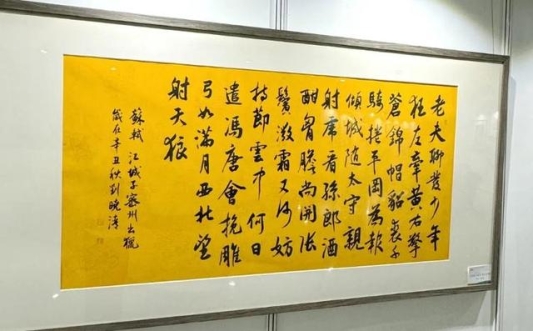 老夫聊發少年
狂左牽黃右擎
蒼錦帽貂裘千
騎捲平岡為報
傾城隨太守親
射虎看孫郎酒
酣胸膽尚開張
鬢微霜又何妨
持節雲中何日
遣馮唐會挽雕
弓如滿月西北望
射天狼
蘇軾 江城子密州出獵
歲在辛丑秋刘